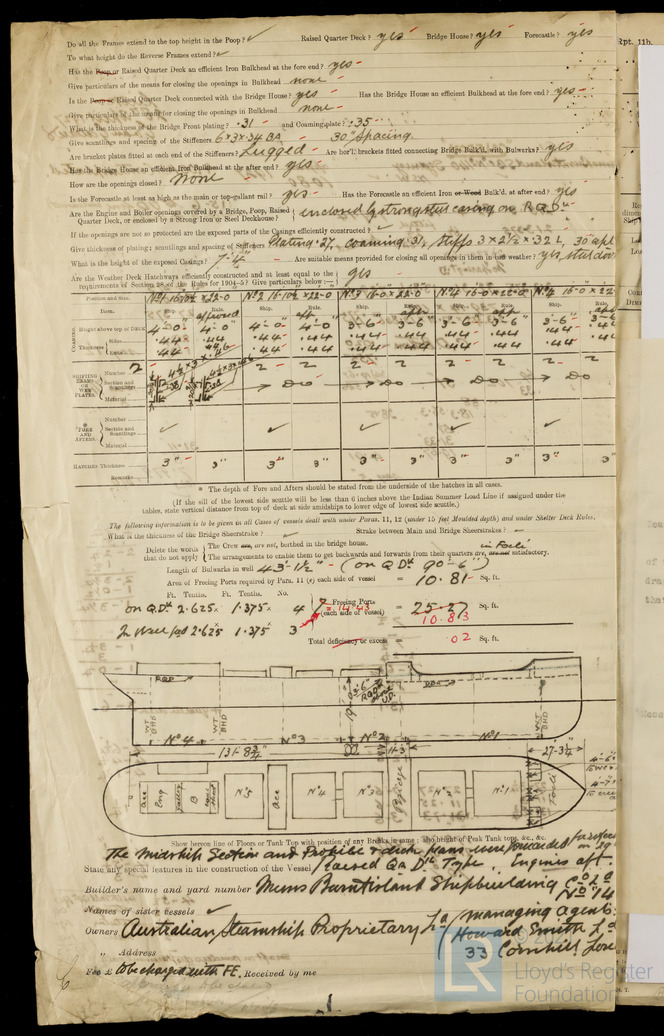 Do all the Frames extend to the top height in the Poop? ✓ Raised Quarter Deck? yes Bridge House? yes Forecastle? yes
To what height do the Reverse Frames extend? ✓
Has the Poop or Raised Quarter Deck an efficient Iron Bulkhead at the fore end? yes
Give particulars of the means for closing the openings in Bulkhead none
Is the Poop or Raised Quarter Deck connected with the Bridge House? yes Has the Bridge House an efficient Bulkhead at the fore end? yes
Give particulars of the means for closing the openings in Bulkhead none
What is the thickness of the Bridge Front plating? .31 and Coaming plate? .35
Give scantlings and spacing of the Stiffeners 6 x 3 x .34 BA 30" Spacing
Are bracket plates fitted at each end of the Stiffeners? Lugged Are hor'l brackets fitted connecting Bridge Bulk'd. with Bulwarks? yes
Has the Bridge House an efficient Iron Bulkhead at the after end? yes
How are the openings closed? None
Is the Forecastle at least as high as the main or top-gallant rail? yes Has the Forecastle an efficient Iron or Wood Bulk'd. at after end? yes
Are the Engine and Boiler openings covered by a Bridge, Poop, Raised
Quarter Deck, or enclosed by a Strong Iron or Steel Deckhouse? enclosed by strong steel casing on R Q Dk
If the openings are not so protected are the exposed parts of the Casings efficiently constructed? ✓
Give thickness of plating; scantlings and spacing of Stiffeners Plating .27, coaming .31, Stiffs 3 x 2½ x .32 L, 30" apt
What is the height of the exposed Casings? 7'-4" Are suitable means provided for closing all openings in them in bad weather? yes, steel doors
Are the Weather Deck Hatchways efficiently constructed and at least equal to the
requirements of Section 28 of the Rules for 1904-5? Give particulars below:— yes
Position and Size. No 1 16-10½ x 22-0 No 2 16-10½ x 22-0 No 3 16-0 x 22-0 No 4 16-0 x 22-0 16-0 x 22
Item. Ship. Rule. Ship. Rule. Ship. Rule. Ship. Rule.
COAMING Height above top of DECK 4'-0" 4'-0" 4'-0" 4'-0" 3'-6" 3'-6" 3'-6" 3'-6" 3'-6"
Thickness Sides .44 .44 .44 .44 .44 .44 .44 .44 .44
Ends .44 .44 .44 .44 .44 .44 .44 .44
SHIFTING BEAMS OR WEB PLATES. Number 2 2 2 2 2 2 2 2 2
Section and Scantlings Do Do Do Do
Material
* FORE AND AFTERS. Number
Section and Scantlings ✓ ✓ ✓ ✓ ✓
Material
HATCHES Thickness 3" 3" 3" 3" 3" 3" 3" 3" 3" 3"
Remarks
* The depth of Fore and Afters should be stated from the underside of the hatches in all cases.
(If the sill of the lowest side scuttle will be less than 6 inches above the Indian Summer Load Line if assigned under the
tables, state vertical distance from top of deck at side amidships to lower edge of lowest side scuttle.)
The following information is to be given in all Cases of vessels dealt with under Paras. 11, 12 (under 15 feet Moulded depth) and under Shelter Deck Rules.
What is the thickness of the Bridge Sheerstrake? ✓ Strake between Main and Bridge Sheerstrakes?
Delete the words that do not apply
The Crew are, are not, berthed in the bridge house. in Fo'c'le
The arrangements to enable them to get backwards and forwards from their quarters are, are not satisfactory.
Length of Bulwarks in well 43'-1½" (on Q Dk 90'-6")
Area of Freeing Ports required by Para. 11 (e) each side of vessel = 10.81 Sq. ft.
Ft. Tenths. Ft. Tenths. No.
on Q Dk 2.625 x 1.375 x 4 Freeing Ports = 14.43 = 25.27 Sq. ft.
In Well fwd 2.625 x 1.375 3 (each side of vessel) 10.83
Total deficiency or excess .02 Sq. ft.
RQD
WT BHD
WT BHD
No 4 No 3 No 2 No 1
131-8¾" 11-3 27-3¼"
Acc Eng Galley B No 5 Acc No 4 No 3 Bridge No 2 No 1 Fo'c'le
Show hereon line of Floors or Tank Top with position of any Breaks in same; also height of Peak Tank tops, &c., &c.
The Midship Section and Profile & deck plans were forwarded for reference
State any special features in the construction of the Vessel Raised Qr Dk Type. Engines aft.
Builder's name and yard number Messrs Burntisland Shipbuilding Co Ld
Names of sister vessels ✓
Owners Australian Steamship Proprietary Ld (Managing Agents
Howard Smith Ld
„ Address 33 Cornhill Lon
Fee £ to be charged with FE. Received by me
Rpt. 11b.
LR
Lloyd's Register
Foundation